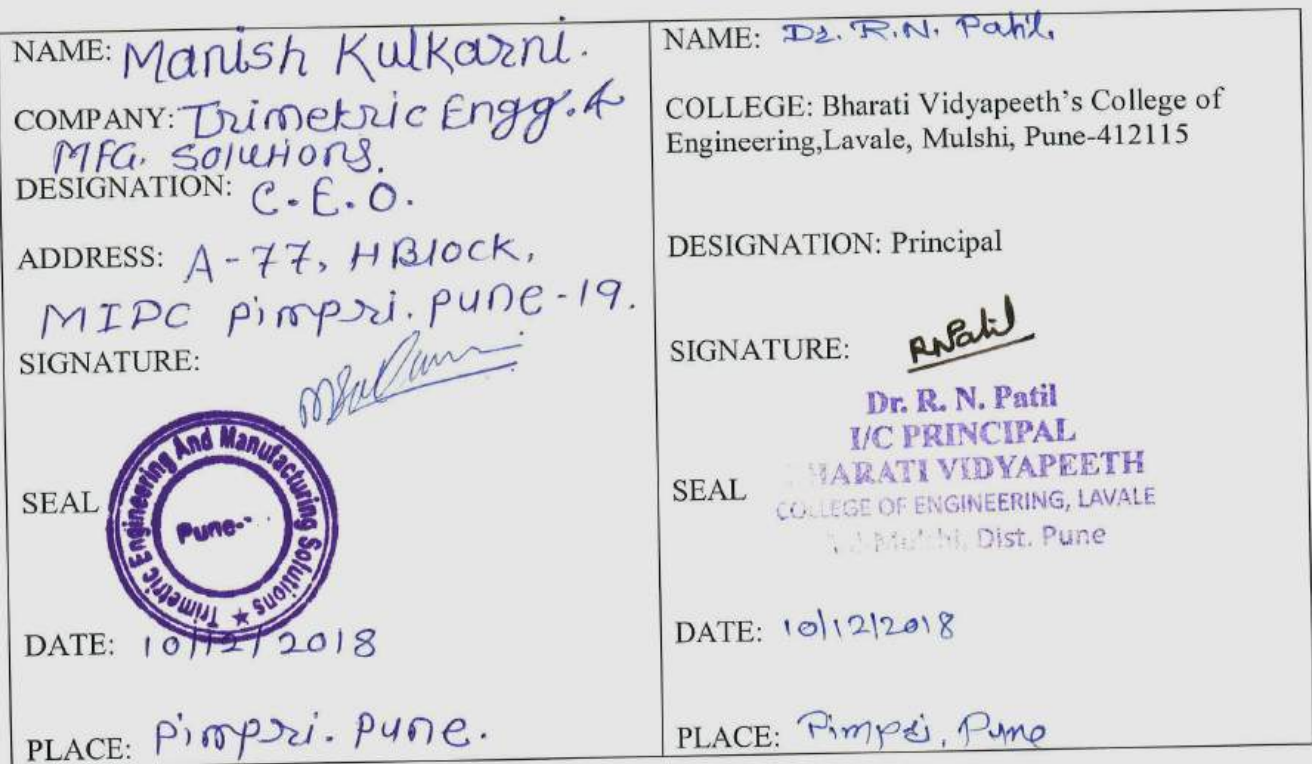 NAME: Manish Kulkarni.
COMPANY: Trimetric Engg. &
MFG. Solutions.
DESIGNATION: C.E.O.
ADDRESS: A-77, H Block,
MIDC Pimpri. Pune-19.
SIGNATURE:
SEAL
Trimetric Engineering And Manufacturing Solutions ★
Pune-
DATE: 10/12/2018
PLACE: Pimpri. Pune.
NAME: Dr. R.N. Patil.
COLLEGE: Bharati Vidyapeeth's College of
Engineering,Lavale, Mulshi, Pune-412115
DESIGNATION: Principal
SIGNATURE: RNPatil
Dr. R. N. Patil
I/C PRINCIPAL
HARATI VIDYAPEETH
SEAL
COLLEGE OF ENGINEERING, LAVALE
Mulshi, Dist. Pune
DATE: 10/12/2018
PLACE: Pimpri, Pune